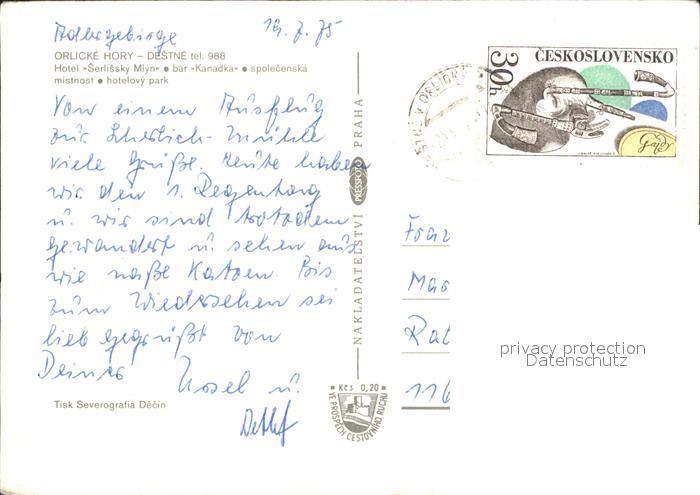 Adlergebirge 13.7.75
ORLICKÉ HORY – DEŠTNÉ tel. 988
Hotel »Šerlišský Mlýn« ● bar »Kanadka« ● společenská
místnost ● hotelový park
Von einem Ausflug
zur Scherlich-Mühle
viele Grüße. Heute haben
wir den 1. Regentag
u. wir sind trotzdem
gewandert u. sehen aus
wie naße Katzen. Bis
zum Wiedersehen sei
lieb gegrüßt von
Deiner Ursel u.
Detlef
Tisk Severografia Děčín
NAKLADATELSTVÍ PRESSFOTO PRAHA
Kčs 0,20
VE PROSPĚCH CESTOVNÍHO RUCHU
ČESKOSLOVENSKO
30h
Gajdy
Frau
Mar
Rat
116
privacy protection
Datenschutz